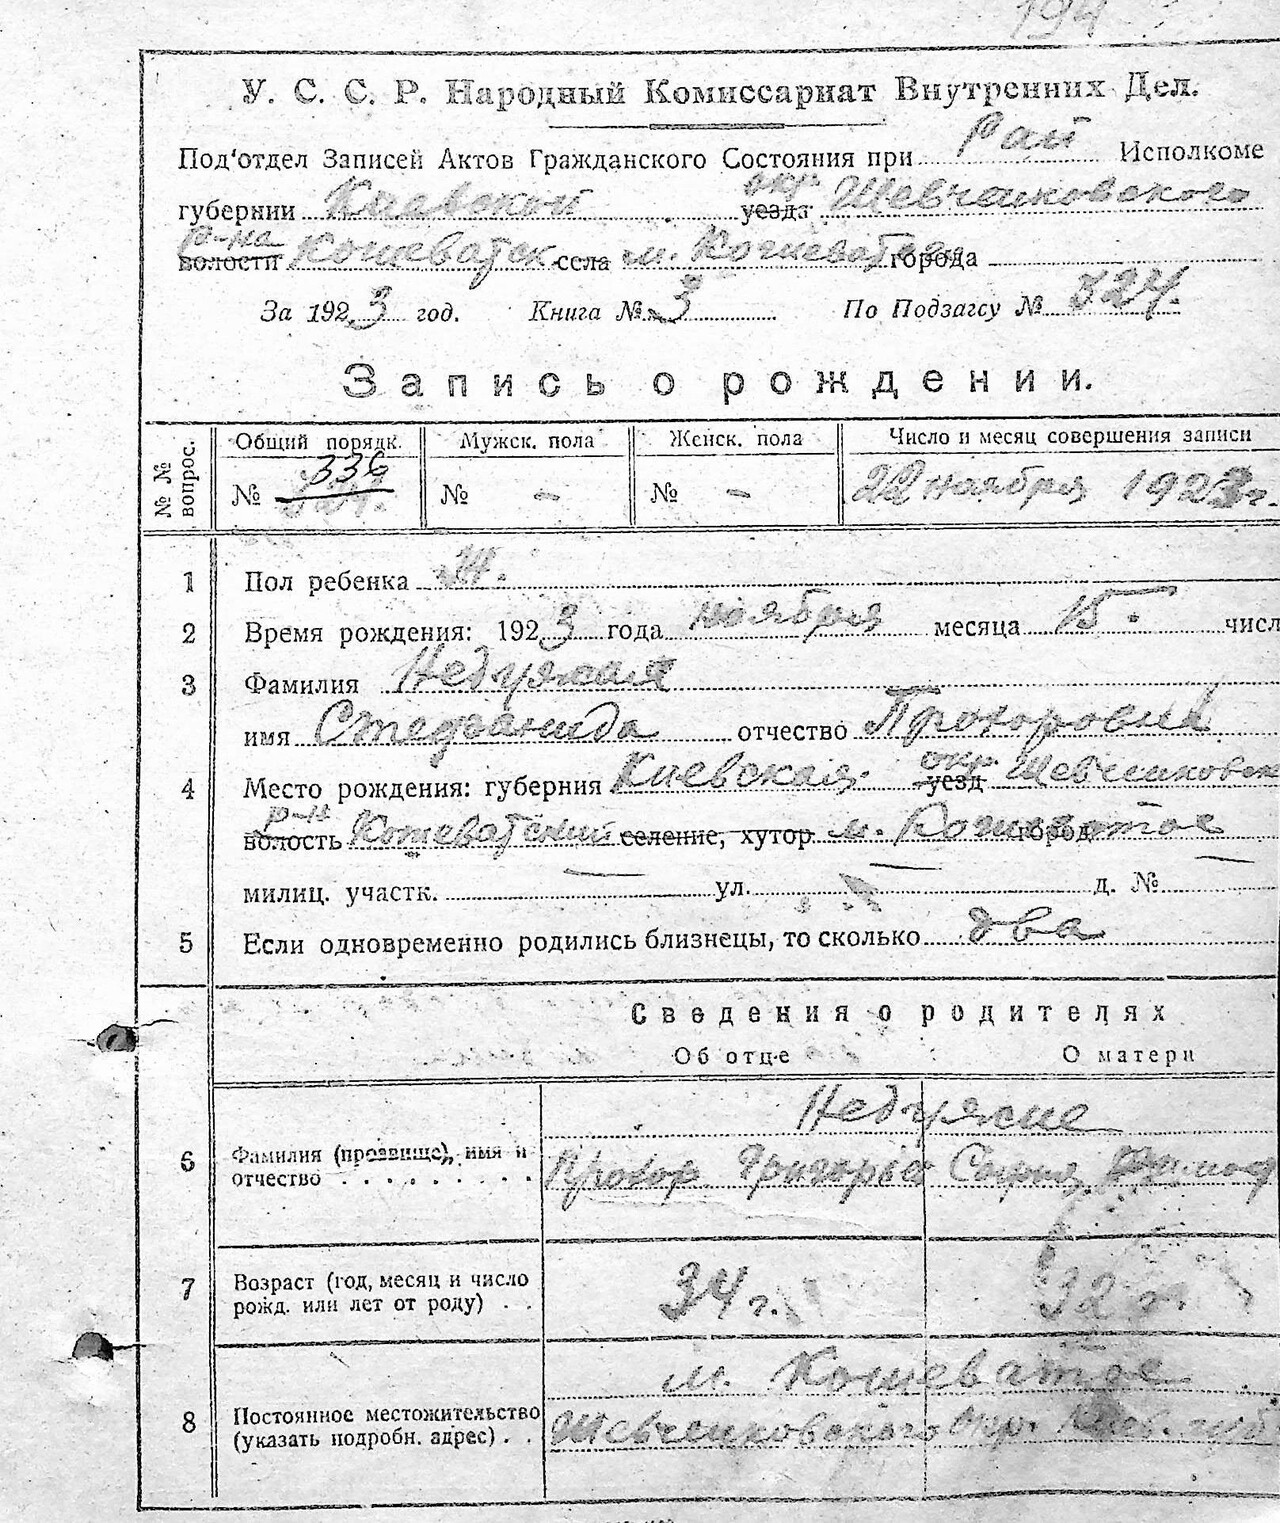 194
У. С. С. Р. Народный Комиссариат Внутренних Дел.
Под'отдел Записей Актов Гражданского Состояния при Рай Исполкоме
губернии Киевской уезда окр. Шевченковского
волости р-на Кошеватск села м. Кошеватого города
За 1923 год. Книга № 3 По Подзагсу № 324.
Запись о рождении.
№ № вопрос. Общий порядк. Мужск. пола Женск. пола Число и месяц совершения записи
№ 336 324. № – № – 22 ноября 1923 г.
1 Пол ребенка Ж.
2 Время рождения: 1923 года ноября месяца 15. числ
3 Фамилия Недужая
имя Стефанида отчество Прохоровна
4 Место рождения: губерния Киевская уезд окр. Шевченковск
волость р-н Кошеватский селение, хутор м. Кошеватое город
милиц. участк. — ул. — д. № —
5 Если одновременно родились близнецы, то сколько два
Сведения о родителях
Об отце О матери
Недужие
6 Фамилия (прозвище), имя и отчество Прохор Григорьев София
7 Возраст (год, месяц и число рожд. или лет от роду) 34 г. 32 г.
м. Кошеватое
8 Постоянное местожительство (указать подробн. адрес) Шевченковского Окр. Киев. губ.